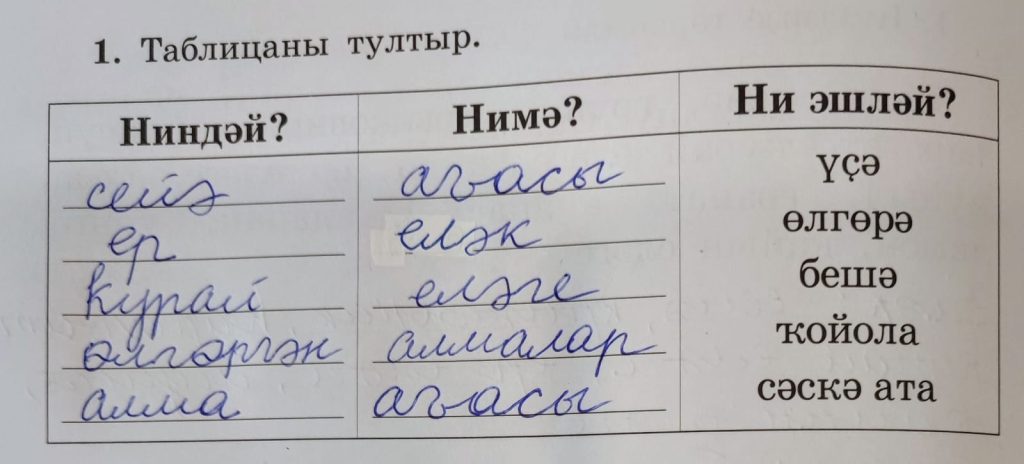 1. Таблицаны тултыр.
Ниндәй? Нимә? Ни эшләй?
сейә ағасы үҫә
ер еләк өлгөрә
Курай еләге бешә
өлгәргән алмалар ҡойола
алма ағасы сәскә ата